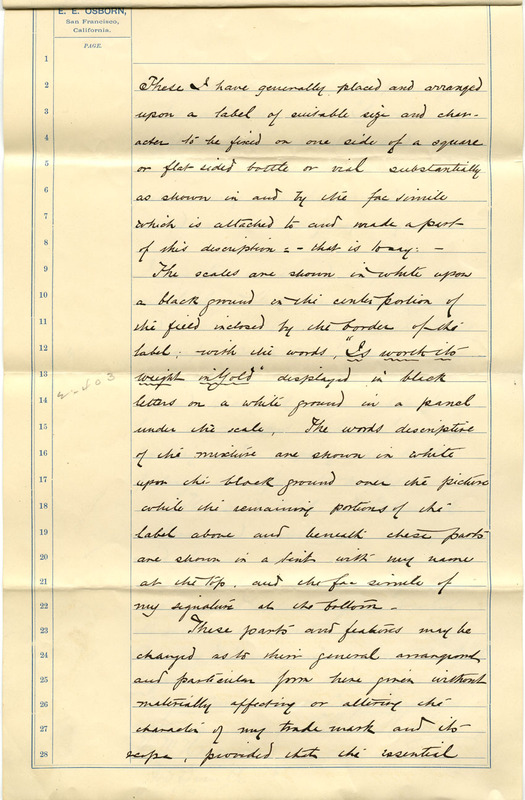 E. E. OSBORN,
San Francisco,
California.
PAGE.
1
2 These I have generally placed and arranged
3 upon a label of suitable size and char-
4 acter to be fixed on one side of a square
5 or flat sided bottle or vial substantially
6 as shown in and by the fac simile
7 which is attached to and made a part
8 of this description:- that is to say:-
9 The scales are shown in white upon
10 a black ground in the center portion of
11 the field inclosed by the border of the
12 label; with the words, "Is worth its
13 weight in Gold" displayed in black
14 letters on a white ground in a panel
15 under the scale. The words descriptive
16 of the mixture are shown in white
17 upon the black ground over the picture
18 while the remaining portions of the
19 label above and beneath these parts
20 are shown in a tint with my name
21 at the top, and the fac simile of
22 my signature at the bottom -
23 These parts and features may be
24 changed as to their general arrangement
25 and particular form here given without
26 materially affecting or altering the
27 character of my trade mark and its
28 scope, provided that the essential